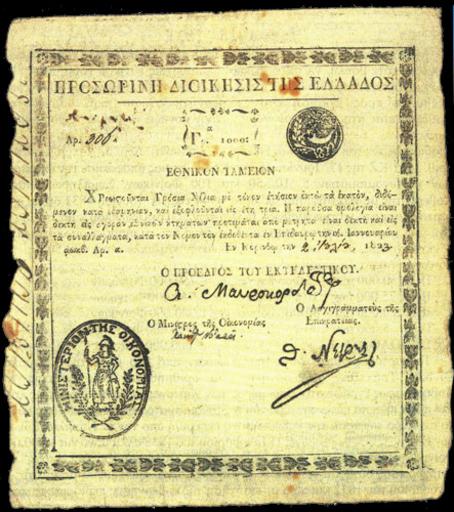 ΠΡΟΣΩΡΙΝΗ ΔΙΟΙΚΗΣΙΣ ΤΗΣ ΕΛΛΑΔΟΣ
Αρ. 206
Γρ. 1000:
ΕΘΝΙΚΟΝ ΤΑΜΕΙΟΝ
Χρεωστοῦνται Γρόσια Χίλια μὲ τόκον ἐτήσιον ὀκτὼ τὰ ἑκατὸν, διδό-
μενον κατὰ ἑξαμηνίαν, καὶ ἐξοφλοῦνται εἰς ἔτη τρία. Ἡ παροῦσα ὁμολογία εἶναι
δεκτὴ εἰς ἀγορὰν ἐθνικῶν κτημάτων εἶναι δεκτὴ καὶ εἰς
τὰ συναλλάγματα, κατὰ τὸν Νόμον τὸν ἐκδοθέντα ἐν Ἐπιδαύρῳ τὴν Ἰαννουαρίου
αωκβ. Αρ. α. Ἐν Κορίνθῳ τὴν
Ο ΠΡΟΕΔΡΟΣ ΤΟΥ ΕΚΤΕΛΕΣΤΙΚΟΥ.
Α. Μαυροκορδάτος
Ο Μινίστρος τῆς Οἰκονομίας
Ο Ἀρχιγραμματεὺς τῆς
Ἐπικρατείας.
Θ. Νέγρης
ΜΙΝΙΣΤΕΡΙΟΝ ΤΗΣ ΟΙΚΟΝΟΜΙΑΣ